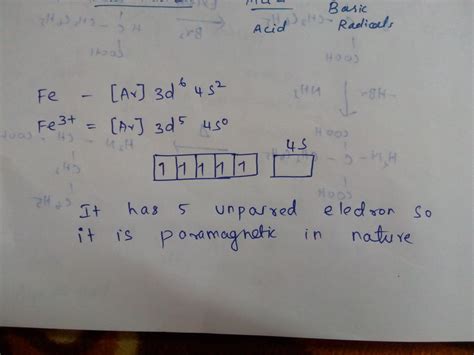 Basic
Acid Radicals
Fe - [Ar] 3d⁶ 4s²
Fe³⁺ = [Ar] 3d⁵ 4s⁰
4s
1 1 1 1 1
It has 5 unpaired eledron so
it is paramagnetic in nature